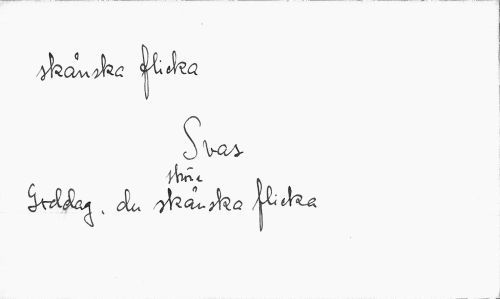 skånska flicka
Svas
Goddag, du skånska flicka